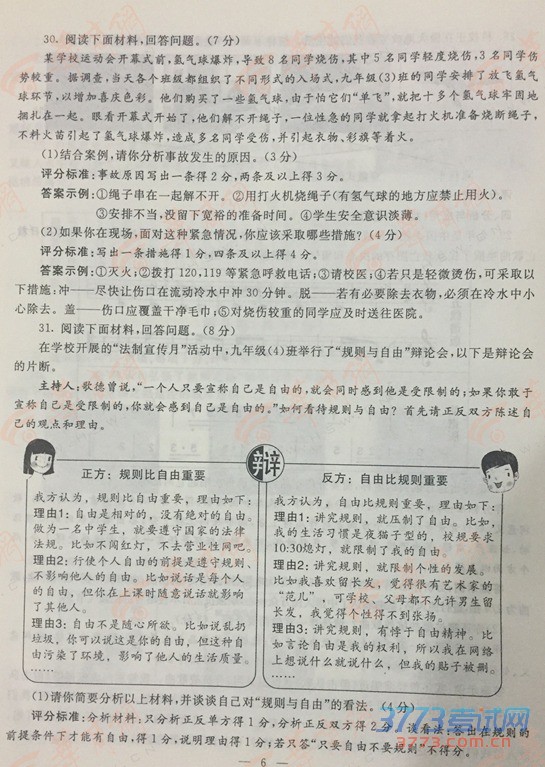 30. 阅读下面材料,回答问题。(7分)
某学校运动会开幕式前,氢气球爆炸,导致8名同学烧伤,其中5名同学轻度烧伤,3名同学伤
势较重。据调查,当天各个班级都组织了不同形式的入场式,九年级(3)班的同学安排了放飞氢气
球环节,以增加喜庆色彩。他们购买了一些氢气球,由于怕它们“单飞”,就把十多个氢气球牢固地
捆扎在一起。眼看开幕式开始了,他们解不开绳子,一位性急的同学就拿起打火机准备烧断绳子,
不料火苗引起了氢气球爆炸,造成多名同学受伤,并引起衣物、彩旗等着火。
(1)结合案例,请你分析事故发生的原因。(3分)
评分标准:事故原因写出一条得2分,两条及以上得3分。
答案示例:①绳子串在一起解不开。②用打火机烧绳子(有氢气球的地方应禁止用火)。
③安排不当,没留下宽裕的准备时间。④学生安全意识淡薄。
(2)如果你在现场,面对这种紧急情况,你应该采取哪些措施?(4分)
评分标准:写出一条措施得1分,四条及以上得4分。
答案示例:①灭火;②拨打120、119等紧急呼救电话;③请校医;④若只是轻微烫伤,可采取以
下措施:冲——尽快让伤口在流动冷水中冲30分钟。脱——若有必要除去衣物,必须在冷水中小
心除去。盖——伤口应覆盖干净毛巾;⑤对烧伤较重的同学应及时送往医院。
31. 阅读下面材料,回答问题。(8分)
在学校开展的“法制宣传月”活动中,九年级(4)班举行了“规则与自由”辩论会,以下是辩论会
的片断。
主持人:歌德曾说,“一个人只要宣称自己是自由的,就会同时感到他是受限制的;如果你敢于
宣称自己是受限制的,你就会感到自己是自由的。”如何看待规则与自由?首先请正反双方陈述自
己的观点和理由。
辩
正方:规则比自由重要
我方认为,规则比自由重要,理由如下:
理由1:自由是相对的,没有绝对的自由。
做为一名中学生,就要遵守国家的法律
法规。比如不闯红灯,不去营业性网吧。
理由2:行使个人自由的前提是遵守规则、
不影响他人的自由。比如说话是每个人
的自由,但你在上课时随意说话就影响
了其他人。
理由3:自由不是随心所欲。比如说乱扔
垃圾,你可以说这是你的自由,但这种自
由污染了环境,影响了他人的生活质量。
……
反方:自由比规则重要
我方认为,自由比规则重要,理由如下:
理由1:讲究规则,就压制了自由。比如,
我的生活习惯是夜猫子型的,校规要求
10:30熄灯,就限制了我的自由。
理由2:讲究规则,就限制个性的发展。
比如我喜欢留长发,觉得很有艺术家的
“范儿”,可学校、父母都不允许男生留
长发,我觉得个性得不到张扬。
理由3:讲究规则,有悖于自由精神。比
如言论自由是我的权利,所以我在网络
上想说什么就说什么,但我的贴子被删。
……
(1)请你简要分析以上材料,并谈谈自己对“规则与自由”的看法。(4分)
评分标准:分析材料:只分析正反单方得1分,分析正反双方得2分。谈看法:答出在规则的
前提条件下才能有自由,得1分,说明理由得1分;若只答“只要自由不要规则”不得分。
— 6 —
3773考试网
3773.com.cn